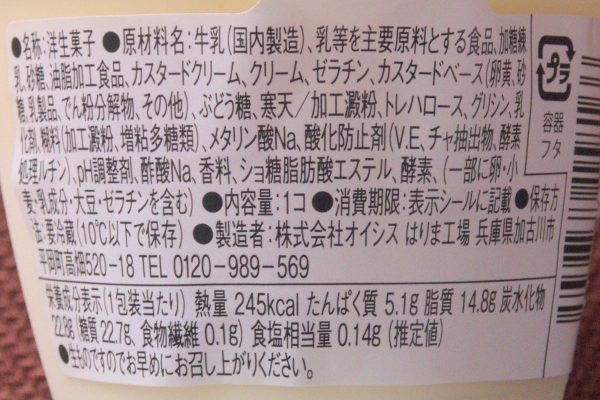 ●名称:洋生菓子 ●原材料名:牛乳(国内製造)、乳等を主要原料とする食品、加糖練
乳、砂糖、油脂加工食品、カスタードクリーム、クリーム、ゼラチン、カスタードベース(卵黄、砂
糖、乳製品、でん粉分解物、その他)、ぶどう糖、寒天/加工澱粉、トレハロース、グリシン、乳
化剤、糊料(加工澱粉、増粘多糖類)、メタリン酸Na、酸化防止剤(V.E、チャ抽出物、酵素
処理ルチン)、pH調整剤、酢酸Na、香料、ショ糖脂肪酸エステル、酵素、(一部に卵・小
麦・乳成分・大豆・ゼラチンを含む) ●内容量:1コ ●消費期限:表示シールに記載 ●保存方
法:要冷蔵(10℃以下で保存) ●製造者:株式会社オイシス はりま工場 兵庫県加古川市
平岡町高畑520-18 TEL 0120-989-569
栄養成分表示(1包装当たり) 熱量 245kcal たんぱく質 5.1g 脂質 14.8g 炭水化物
22.8g(糖質 22.7g、食物繊維 0.1g) 食塩相当量 0.14g (推定値)
●生ものですのでお早めにお召し上がりください。
プラ
容器
フタ